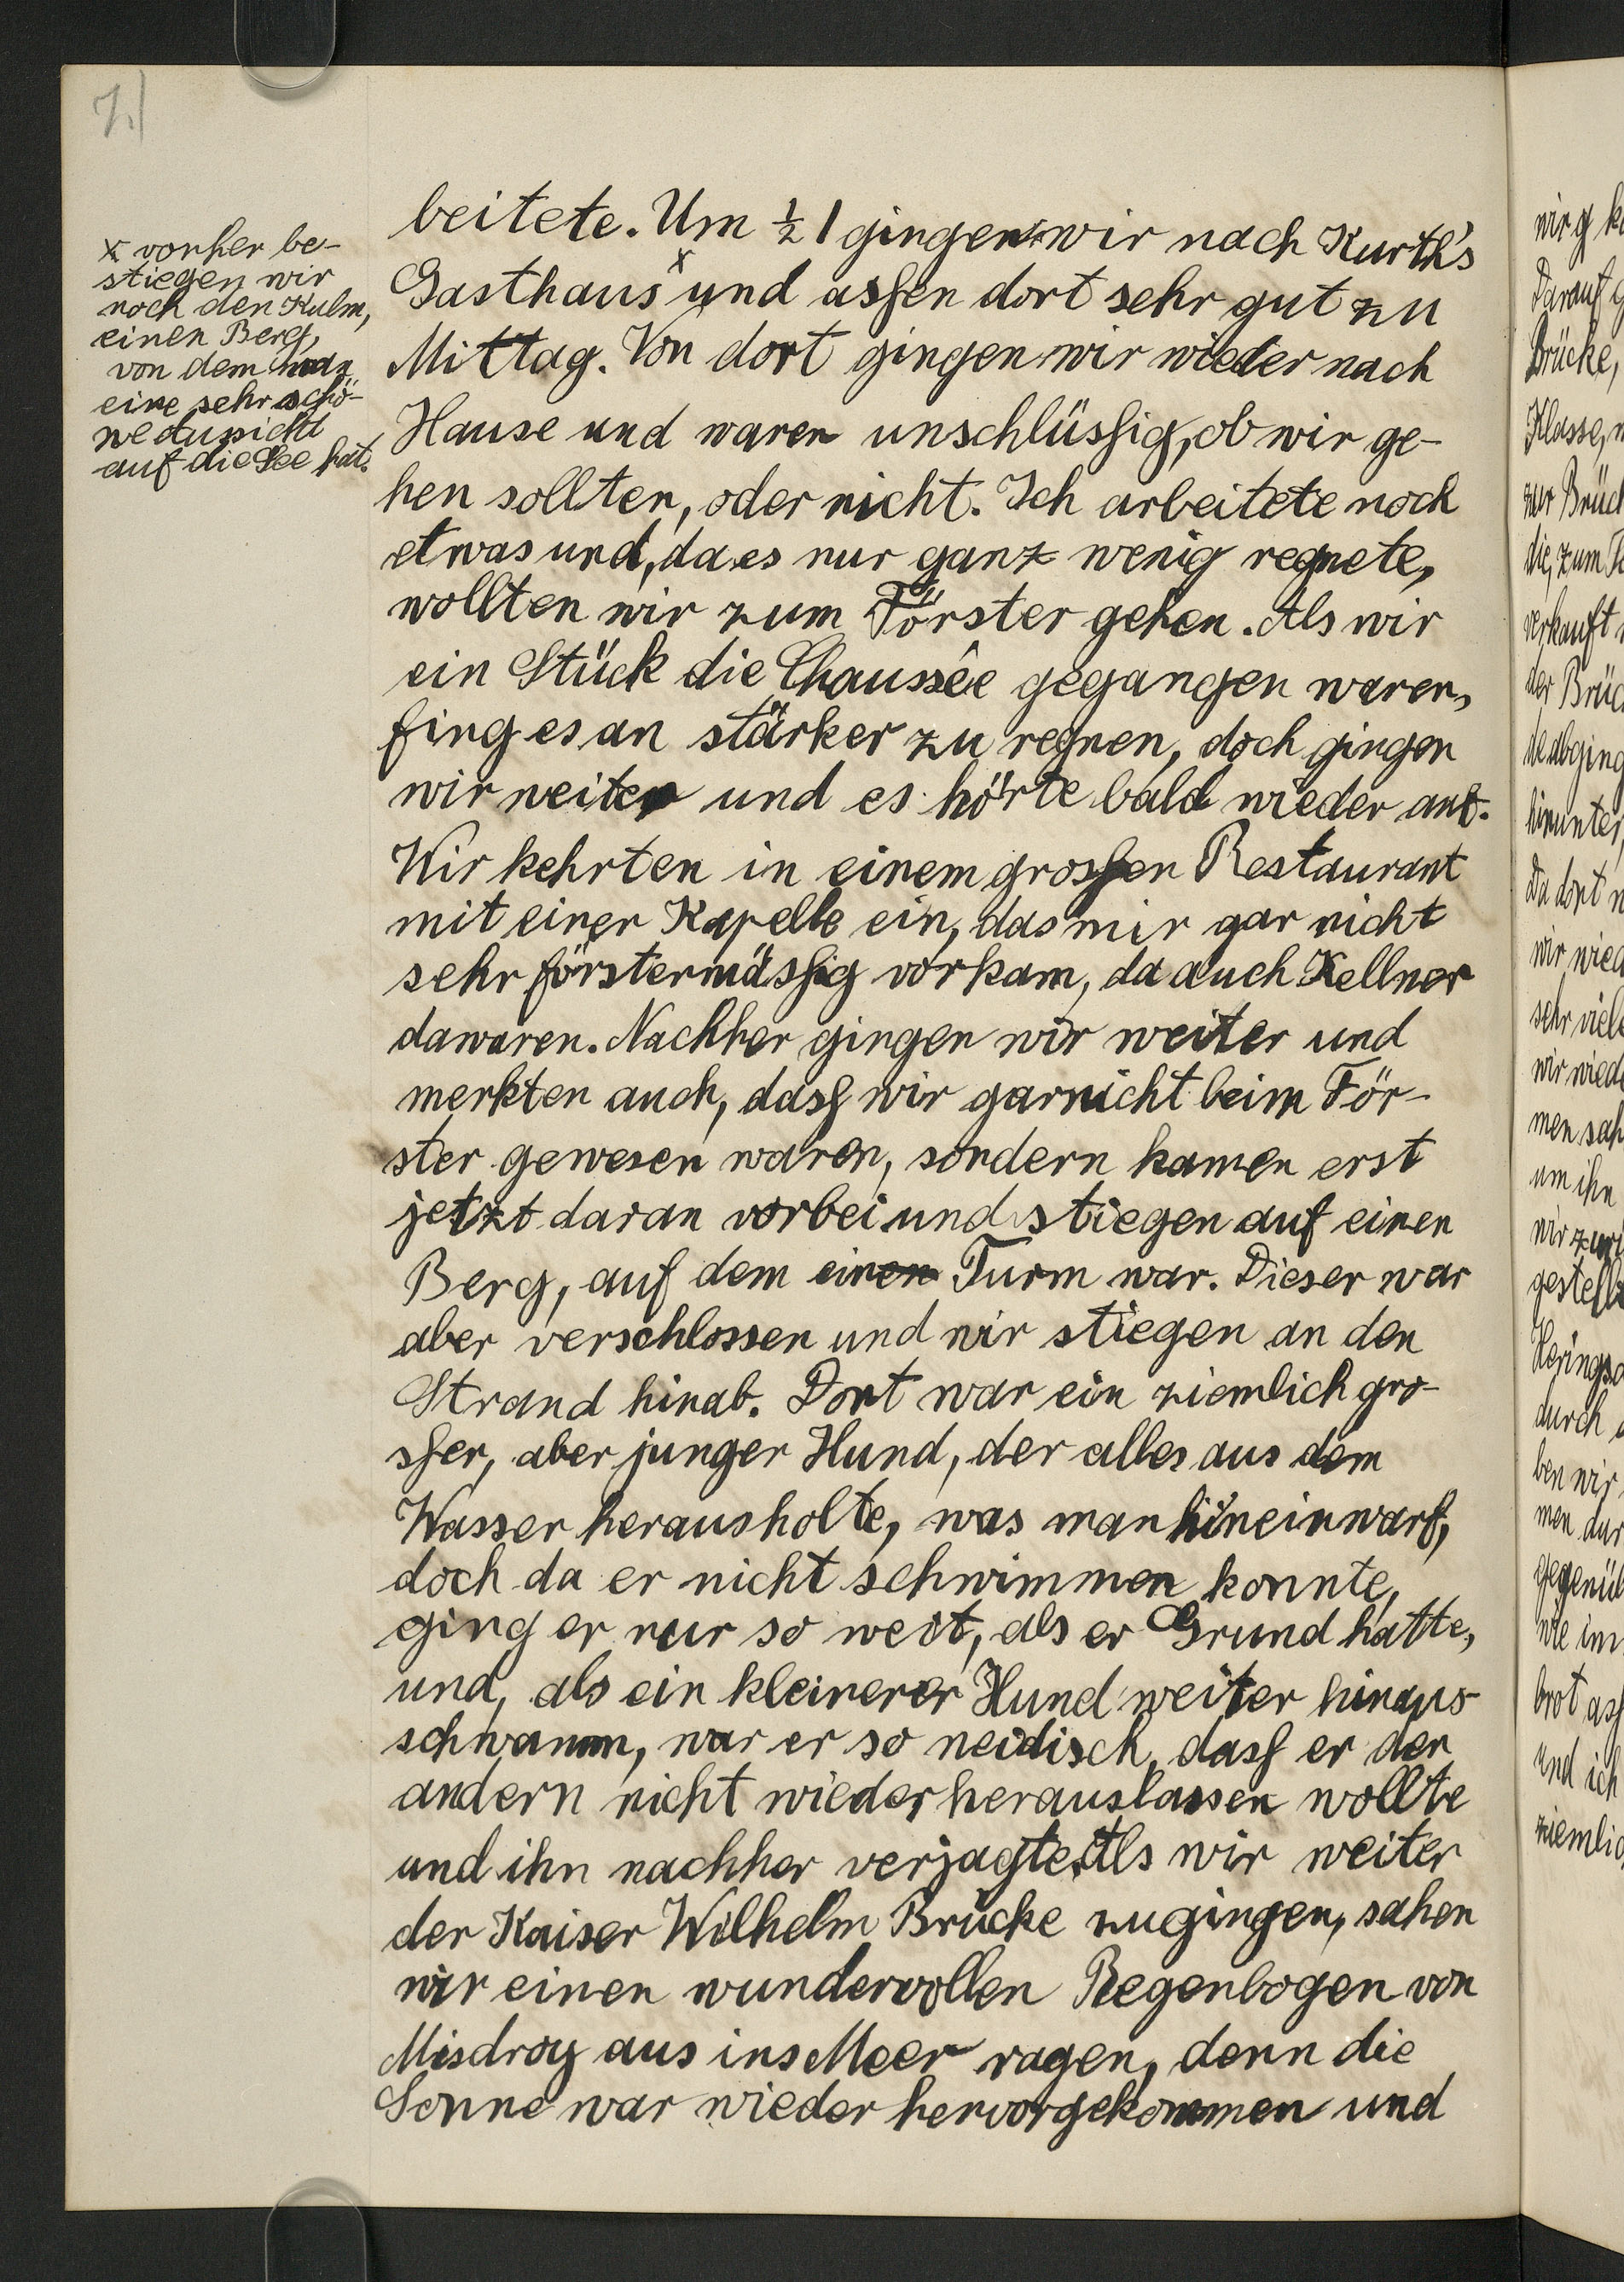 7.)
x vorher be-
stiegen wir
noch den Kulm,
einen Berg,
von dem man
eine sehr schö-
ne Aussicht
auf die See hat.
beitete. Um ½ 1 gingen wir nach Kurth's
Gasthaus x und assen dort sehr gut zu
Mittag. Von dort gingen wir wieder nach
Hause und waren unschlüssig, ob wir ge-
hen sollten, oder nicht. Ich arbeitete noch
etwas und, da es nur ganz wenig regnete,
wollten wir zum Förster gehen. Als wir
ein Stück die Chaussêe gegangen waren,
fing es an stärker zu regnen, doch gingen
wir weiter und es hörte bald wieder auf.
Wir kehrten in einem grossen Restaurant
mit einer Kapelle ein, das mir gar nicht
sehr förstermässig vorkam, da auch Kellner
dawaren. Nachher gingen wir weiter und
merkten auch, dass wir garnicht beim För-
ster gewesen waren, sondern kamen erst
jetzt daran vorbei und stiegen auf einen
Berg, auf dem einen Turm war. Dieser war
aber verschlossen und wir stiegen an den
Strand hinab. Dort war ein ziemlich gro-
sser, aber junger Hund, der alles aus dem
Wasser herausholte, was man hineinwarf,
doch da er nicht schwimmen konnte,
ging er nur so weit, als er Grund hatte,
und, als ein kleinerer Hund weiter hinaus
schwamm, war er so neidisch, dass er den
andern nicht wieder herauslassen wollte
und ihn nachher verjagte. Als wir weiter
der Kaiser Wilhelm Brücke zugingen, sahen
wir einen wundervollen Regenbogen von
Misdroy aus ins Meer ragen, denn die
Sonne war wieder hervorgekommen und
Darauf
Brücke,
Klasse,
zur Brück
die, zum
verkauft
der Brüc
hinunter,
Da dort
wir wied
sehr viele
wir wied
men sah
um ihn
gestellt
durch
ben wir
men dur
gegenüb
wie im
brot ass
und ich
ziemlic